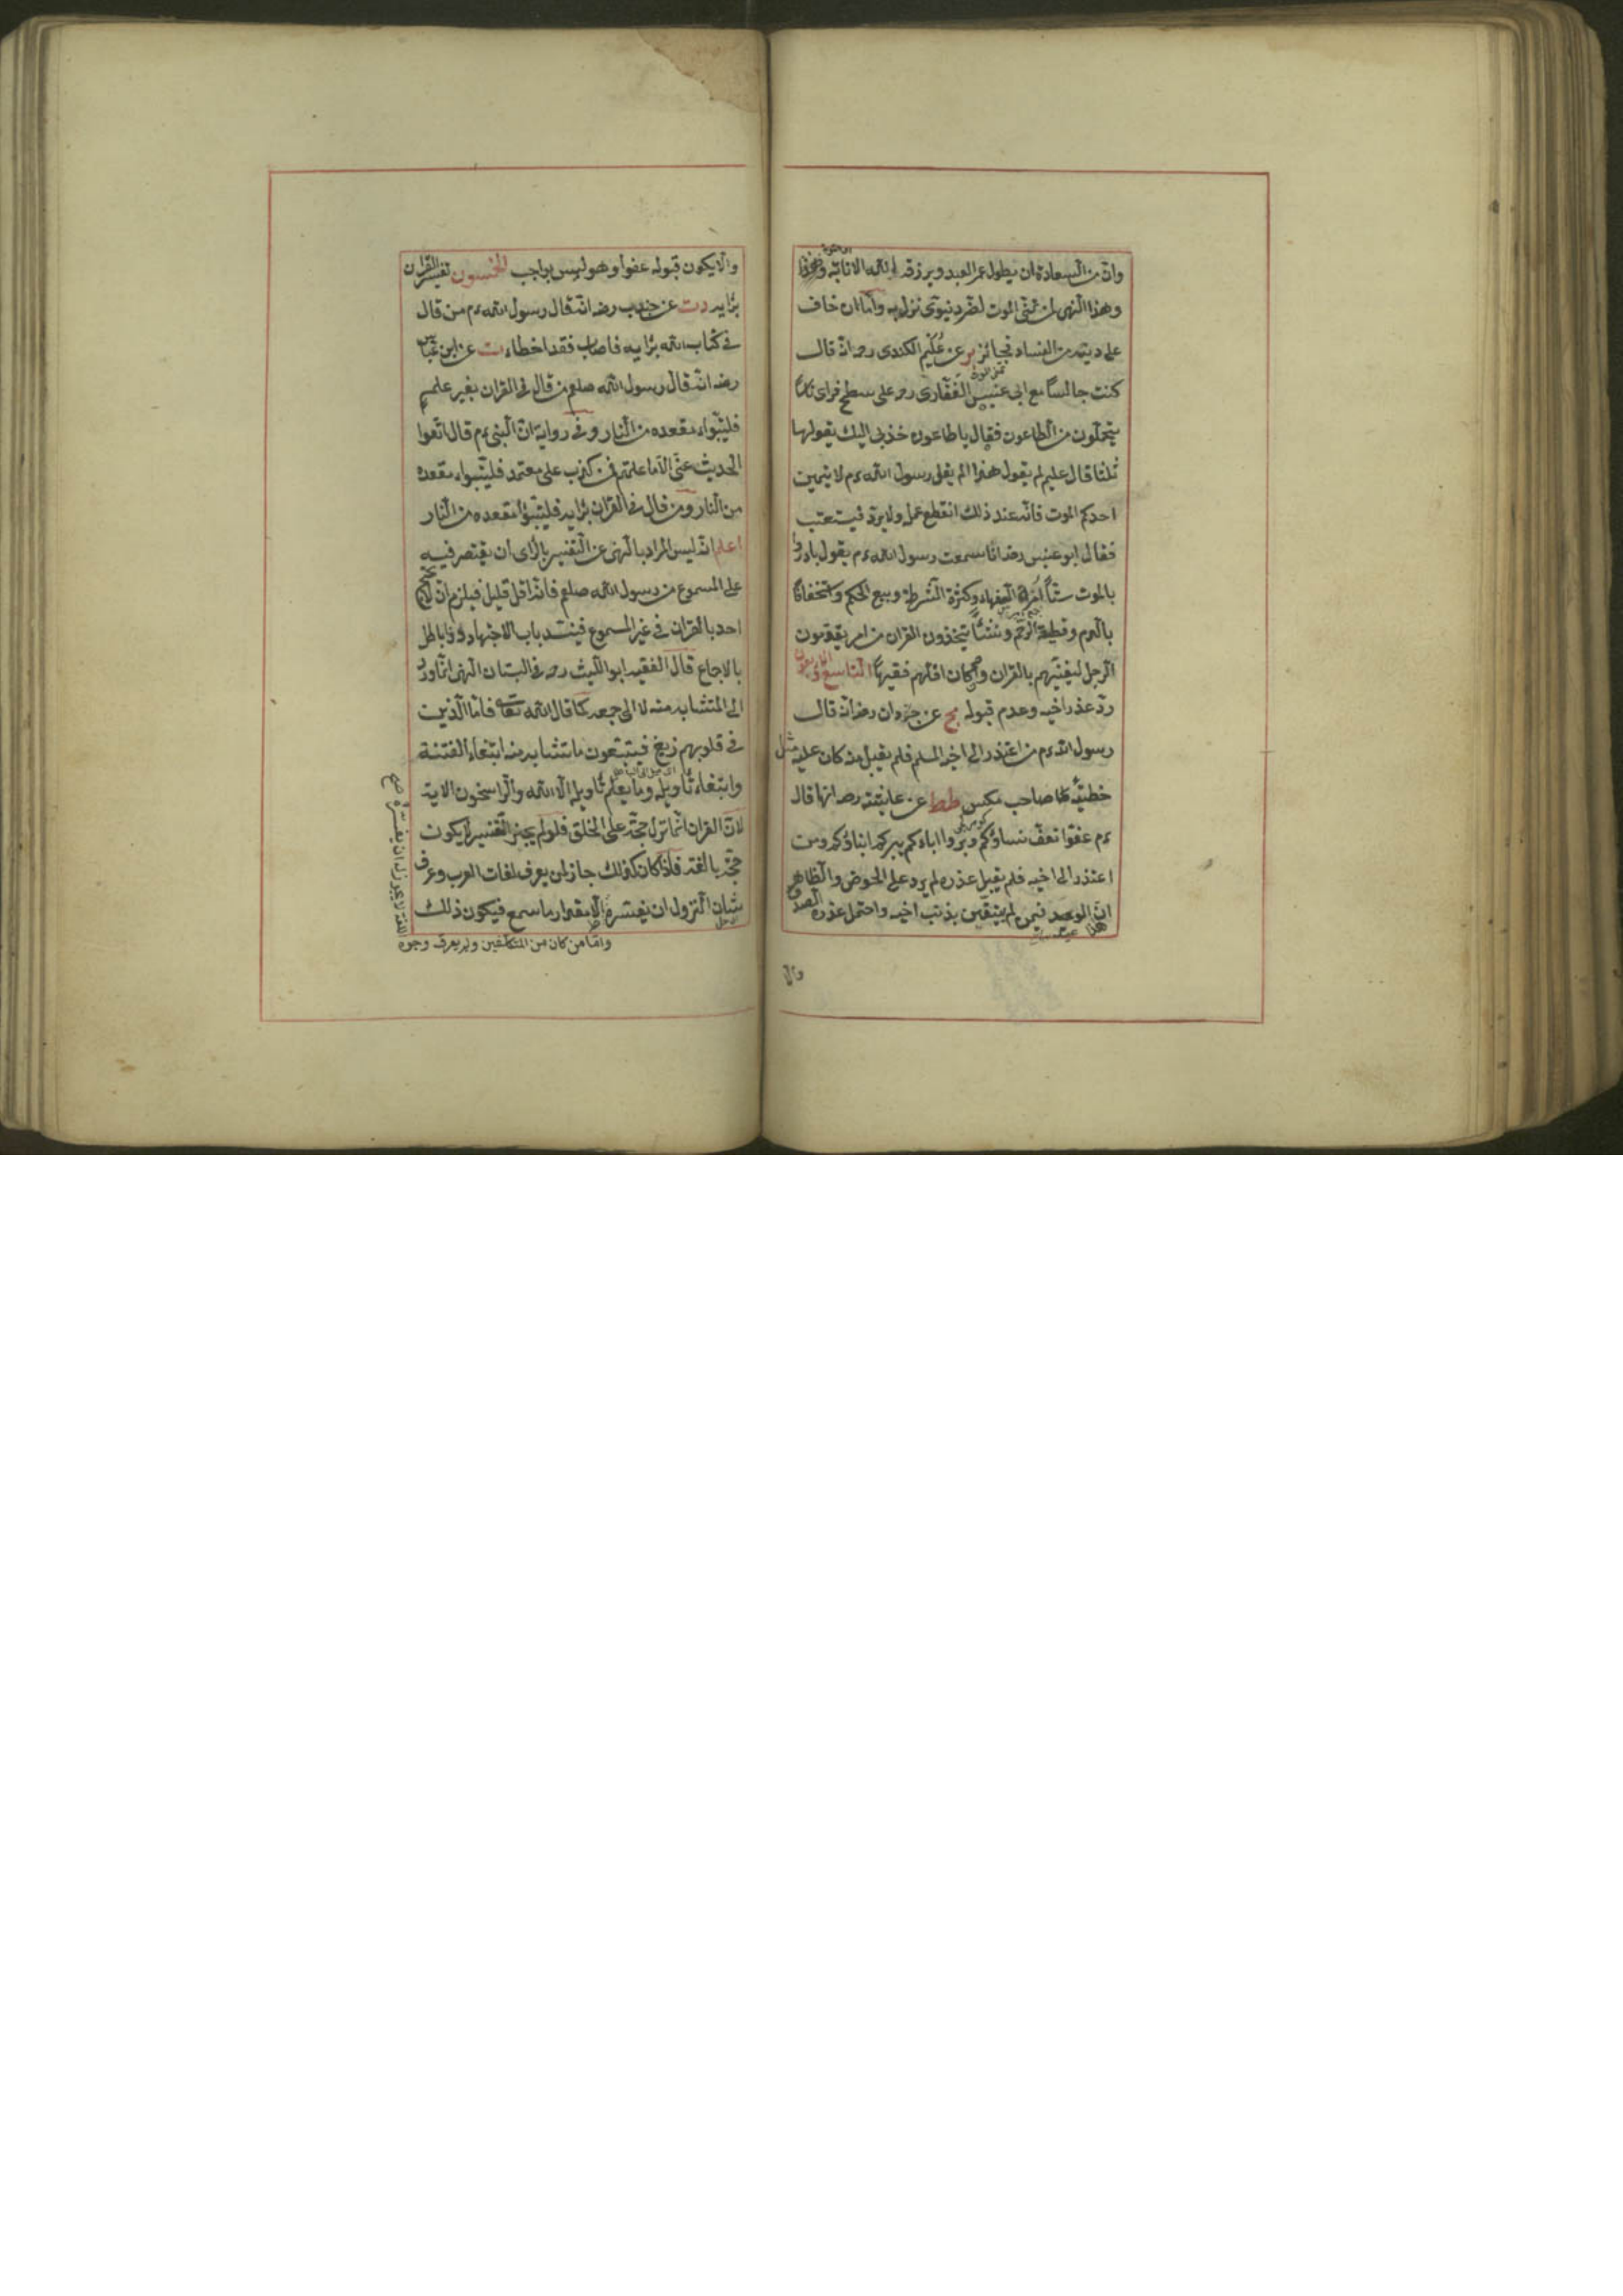 وان من السعادة ان يطول عمر العبد ويرزقه الله الانابة
وهذا النهى لمن تمنى الموت لضر دنيوى نزل به واما ان خاف
على دينه من الفساد فجائز بر عن عليم الكندى رحه انه قال
كنت جالسا مع ابى عنبس الغفارى رحه على سطح فراى ناسا
تمنى الموت
يتحملون من الطاعون فقال يا طاعون خذنى اليك يقولها
ثلثا قال عليم لم يقول هذا الم يقل رسول الله ءم لا يتمنين
احدكم الموت فانه عند ذلك انقطع عمله ولا يرد فيستعتب
فقال ابو عنبس رضه انا سمعت رسول الله ءم يقول بادروا
بالموت ستا امرة السفهاء وكثرة الشرطة وبيع الحكم واستخفافا
بالدم وقطيعة الرحم ونشئا يتخذون القران مزامير يقدمون
الرجل ليغنيهم بالقران وان كان اقلهم فقها التاسع والاربعون
رد عذر اخيه وعدم قبوله مج عن جردان رضه انه قال
رسول الله ءم من اعتذر الى اخيه المسلم فلم يقبل منه كان عليه مثل
خطيئة صاحب مكس طط عن عايشة رضه انها قال
ءم عفوا تعف نساؤكم وبروا اباءكم يبركم ابناؤكم ومن
اعتذر الى اخيه فلم يقبل عذره لم يرد على الحوض والظاهر
ان هذا الوعيد فيمن لم يتيقن بذنب اخيه واحتمل عذره الصدق
والا
والا يكون قبوله عفوا وهو ليس بواجب الخمسون تفسير القران
برايه دت عن جندب رضه انه قال رسول الله ءم من قال
فى كتاب الله برايه فاصاب فقد اخطاء ت عن ابن عباس
رضه انه قال رسول الله صلعم من قال فى القران بغير علم
فليتبواء مقعده من النار وفى رواية ان النبى ءم قال اتقوا
الحديث عنى الا ما علمتم فمن كذب على معتمد فليتبواء مقعده
من النار ومن قال فى القران برايه فليتبؤا مقعده من النار
اعلم انه ليس المراد بالنهى عن التفسير بالراى ان يقتصر فيه
على المسموع من رسول الله صلعم فانه اقل قليل فيلزم ان لا يحتج
احد بالقران فى غير المسموع فينسد باب الاجتهاد وذا باطل
بالاجماع قال الفقيه ابو الليث رحه فى البستان النهى انما ورد
الى المتشابه منه لا الى جميعه كما قال الله تعالى فاما الذين
فى قلوبهم زيغ فيتبعون ما تشابه منه ابتغاء الفتنة
وابتغاء تاويله وما يعلم تاويله الا الله والراسخون الاية
لان القران انما نزل حجة على الخلق فلو لم يجز التفسير لا يكون
حجة بالغة فاذا كان كذلك جاز لمن يعرف لغات العرب وعرف
شان النزول ان يفسره الا مقدار ما سمع فيكون ذلك
واما من كان من المتكلفين ولم يعرف وجوه
اللغة لا يجوز له ان يفسره صح